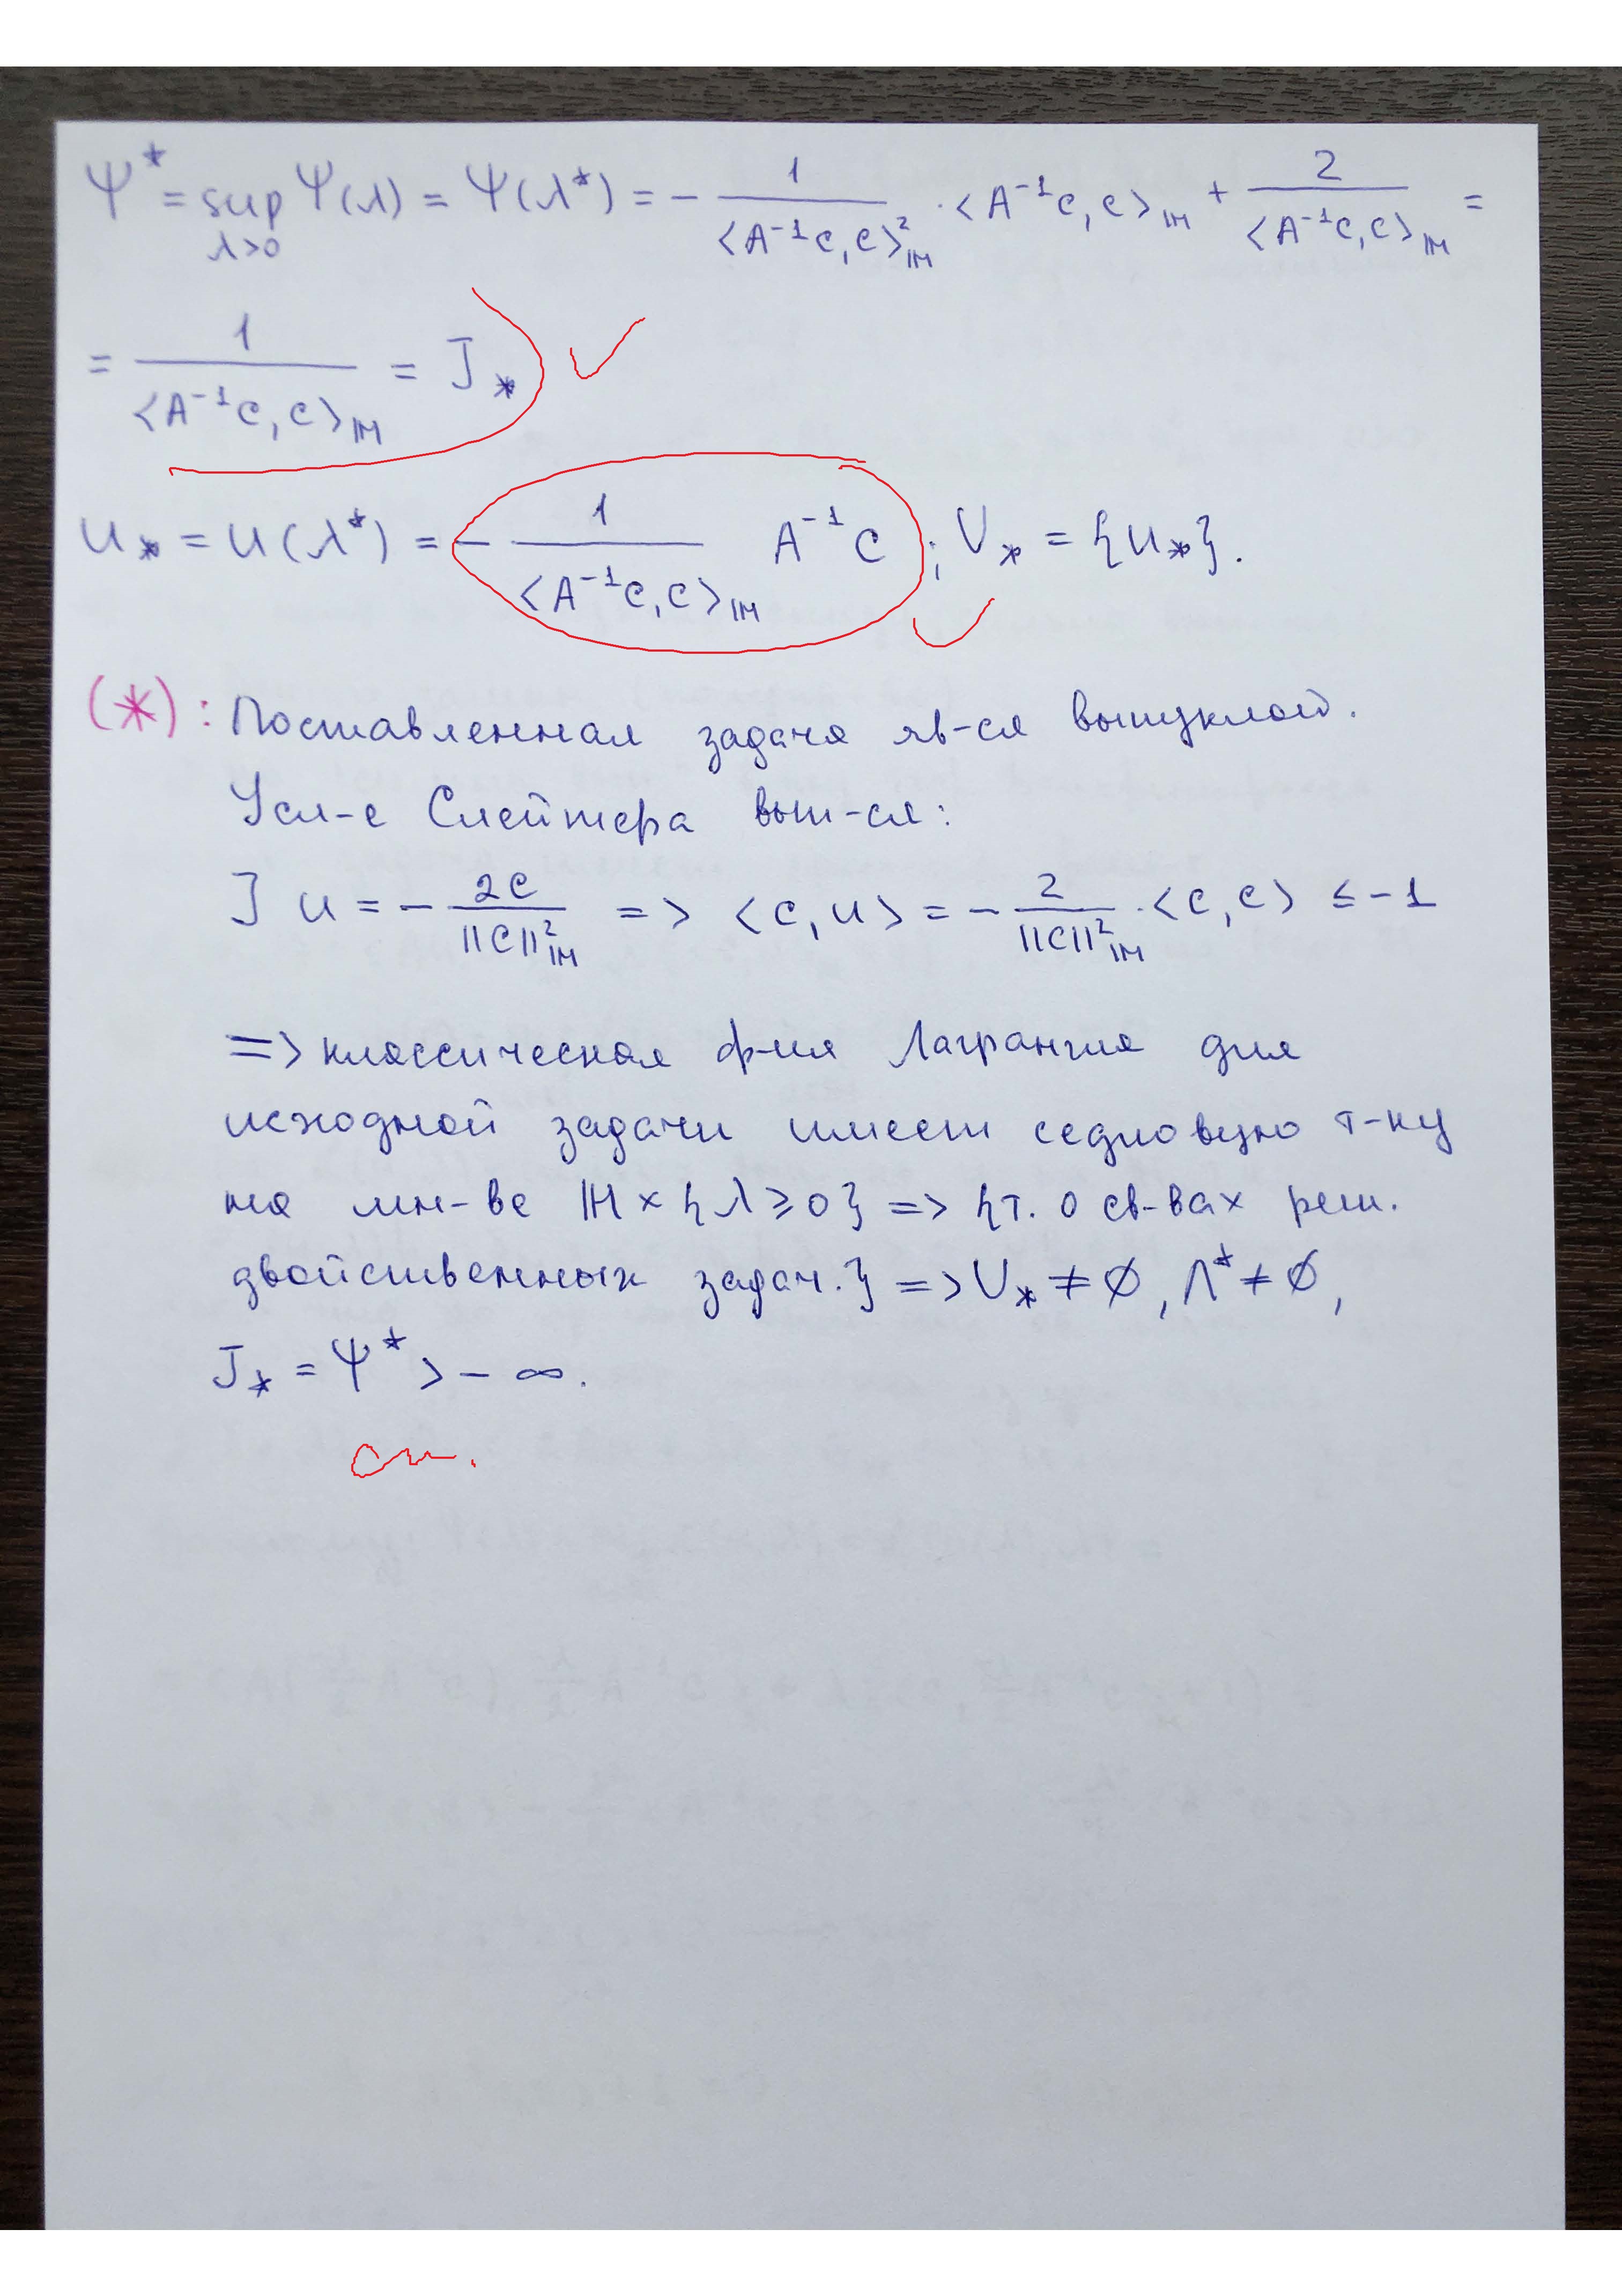 Ψ* = sup Ψ(λ) = Ψ(λ*) = - 1/<A⁻¹c,c>²_ℍ · <A⁻¹c,c>_ℍ + 2/<A⁻¹c,c>_ℍ =
λ>0
= 1/<A⁻¹c,c>_ℍ = J_* ✓
u_* = u(λ*) = - 1/<A⁻¹c,c>_ℍ A⁻¹c; U_* = {u_*}. ✓
(*): Поставленная задача яв-ся выпуклой.
Усл-е Слейтера вып-ся:
∃ u = - 2c/||c||²_ℍ => <c,u> = - 2/||c||²_ℍ · <c,c> ≤ -1
=> классическая ф-ия Лагранжа для
исходной задачи имеет седловую т-ку
на мн-ве ℍ × {λ ≥ 0} => {т. о св-вах реш.
двойственных задач.} => U_* ≠ ∅, Λ* ≠ ∅,
J_* = Ψ* > - ∞.
см.